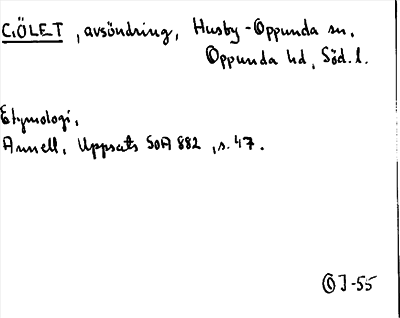 GÖLET, avsöndring, Husby-Oppunda sn,
Oppunda hd, Söd. l.
Etymologi,
Annell, Uppsats SOA 882, s. 47.
OJ-55